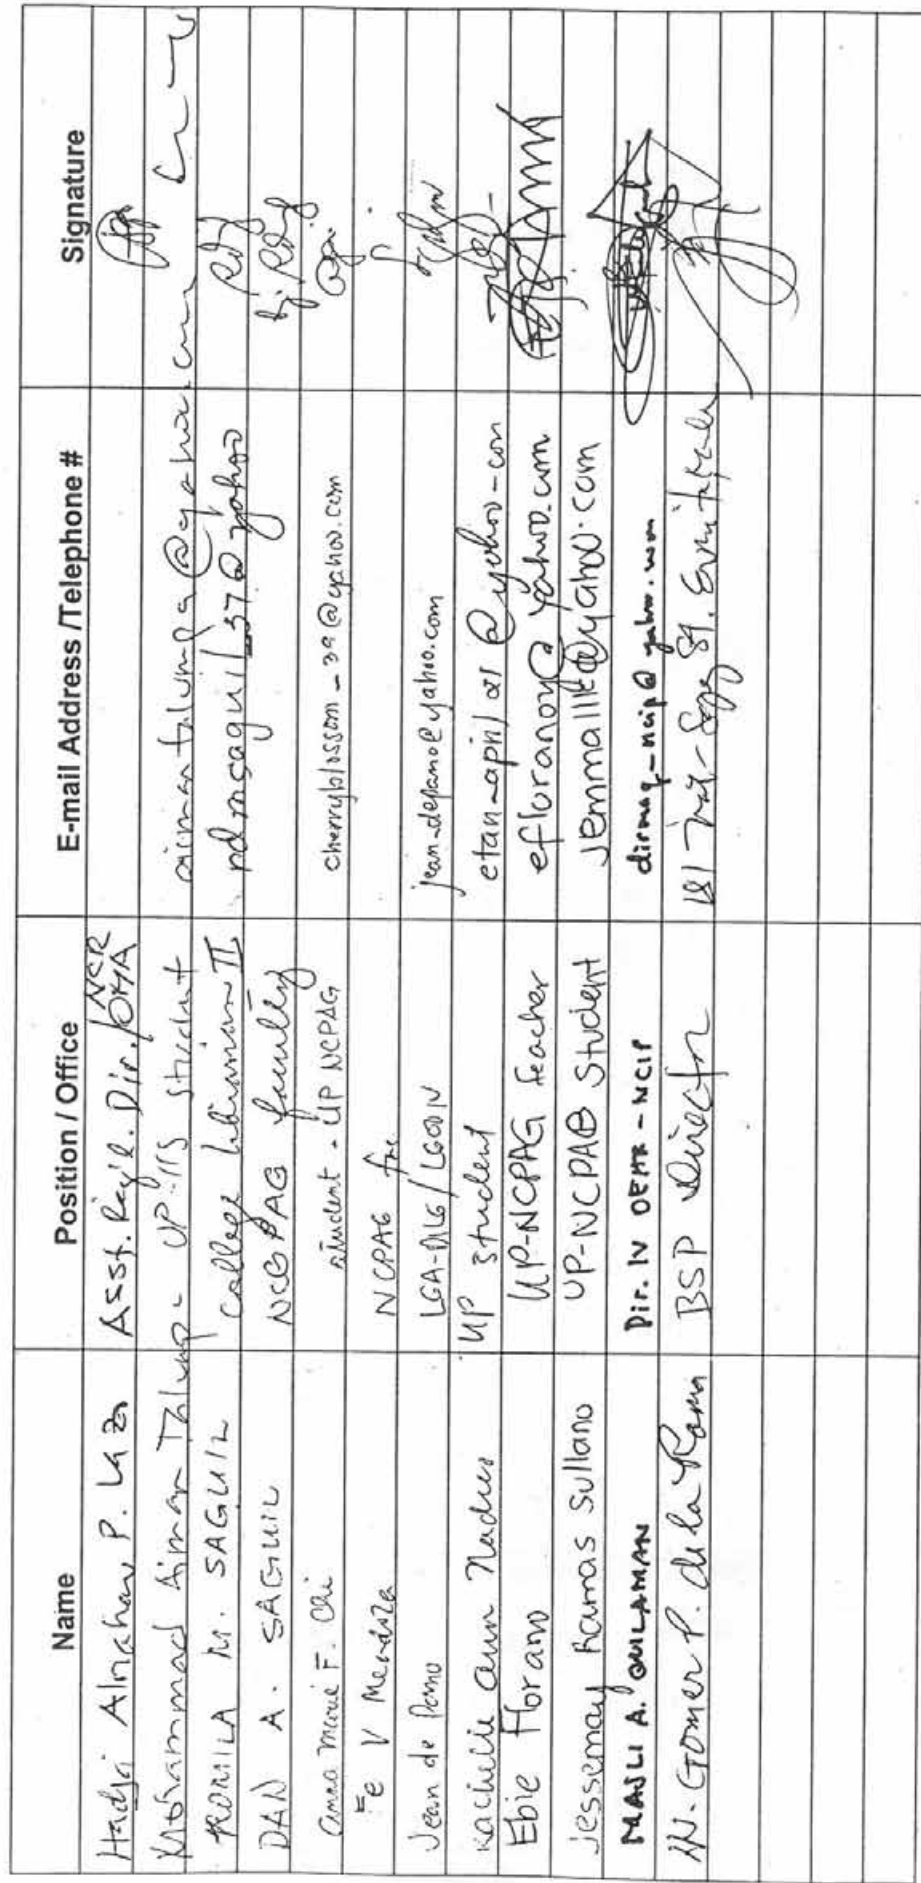 Name Position / Office E-mail Address /Telephone # Signature
Hadji Alnahar P. Laza Asst. Reg'l. Dir./OMA NCR
Mohammad Aiman Talumpa UP-IIS Student aimantalumpa@yahoo.com
ROMILA M. SAGUIL College Librarian II rdmsaguil_37@yahoo
DAN A. SAGUIL NCPAG faculty
Anna Marie F. Chi student - UP NCPAG cherryblossom_39@yahoo.com
Fe V Mendoza NCPAG
Jean de Pano LGA-DILG/LGOO IV jean_depano@yahoo.com
Kachelie Ann UP Student etan_april 21@yahoo.com
Ebie Florano UP-NCPAG teacher efloranoy@yahoo.com
Jessemay Ramas Sullano UP-NCPAG Student jemmallk@yahoo.com
MASLI A. QUILAMAN Dir. IV OEHR - NCIP dirmaq_ncip@yahoo.com
W. Gomer P. de la Rama BSP Director 181